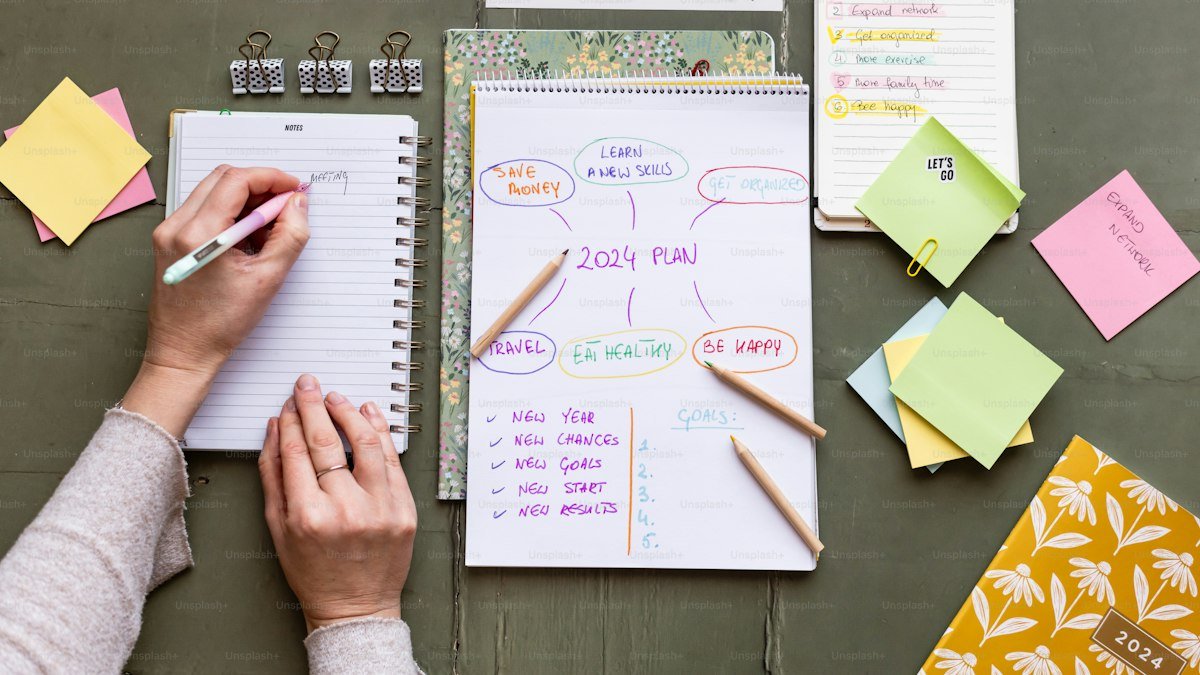 NOTES
MEETING
SAVE
MONEY
LEARN
A NEW SKILLS
GET ORGANIZED
2024 PLAN
TRAVEL
EAT HEALTHY
BE HAPPY
✓ NEW YEAR
✓ NEW CHANCES
✓ NEW GOALS
✓ NEW START
✓ NEW RESULTS
GOALS:
1.
2.
3.
4.
5.
2 Expand network
3. Get organized
4. More exercise
5 More family time
6. Bee happy
LET'S
GO
EXPAND
NETWORK
2024
Unsplash+